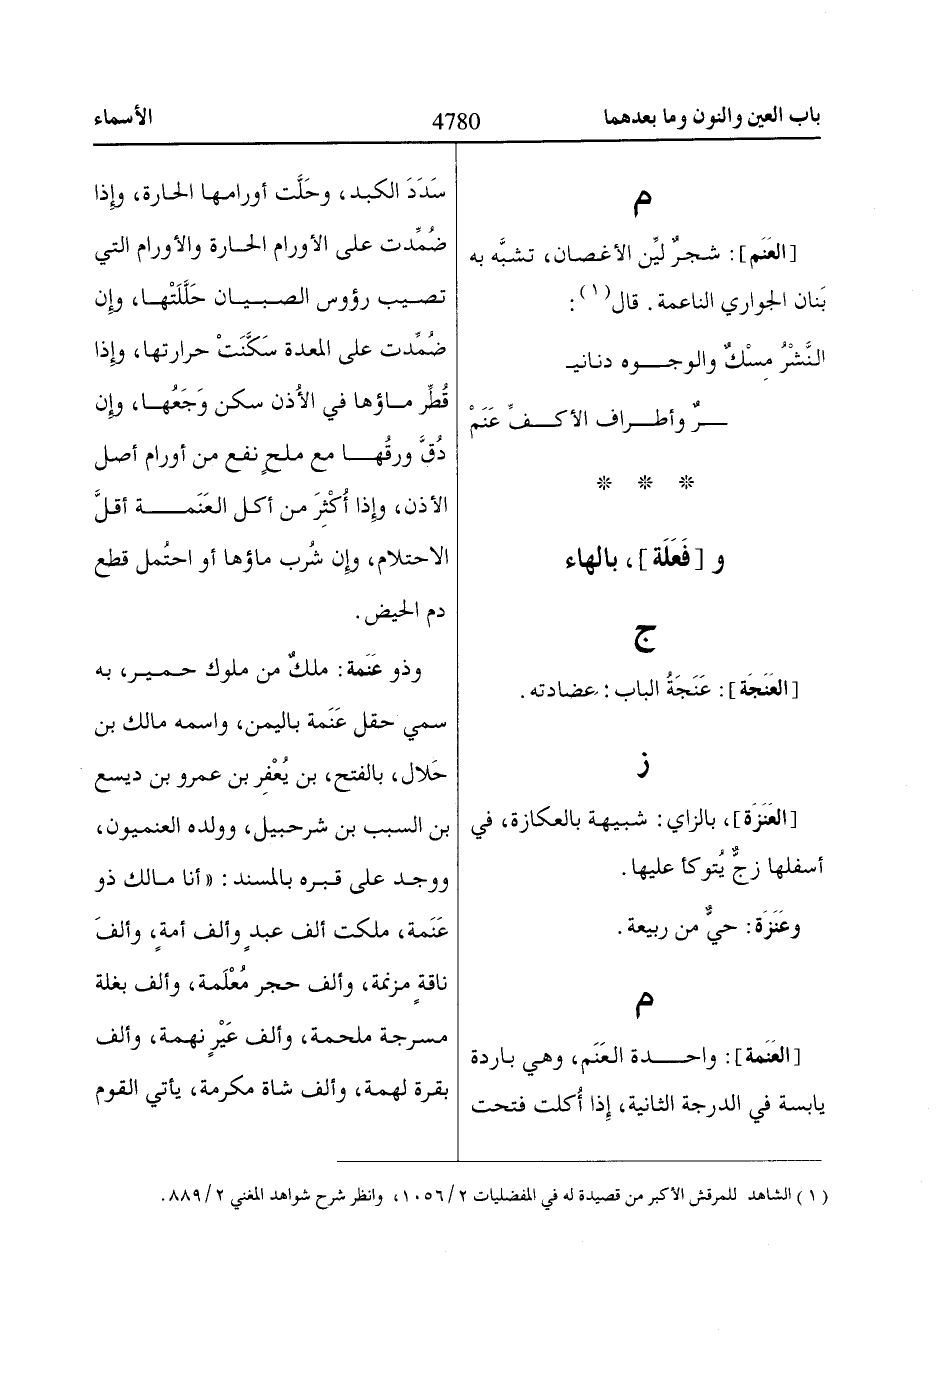 باب العين والنون وما بعدهما 4780 الأسماء
م
[العَنَم]: شجرٌ ليِّن الأغصان، تشبَّه به
بَنان الجواري الناعمة. قال(١):
النَّشْرُ مِسْكٌ والوجـــوه دنانيـ
ـــرٌ وأطـــراف الأكـــفِّ عَنَمْ
* * *
و [فَعَلَة]، بالهاء
ج
[العَنَجَة]: عَنَجَةُ الباب: عضادته.
ز
[العَنَزَة]، بالزاي: شبيهة بالعكازة، في
أسفلها زجٌّ يُتوكأ عليها.
وعَنَزَة: حيٌّ من ربيعة.
م
[العَنَمة]: واحـــدة العَنَم، وهي باردة
يابسة في الدرجة الثانية، إذا أُكلت فتحت
سَدَدَ الكبد، وحَلَّت أورامها الحارة، وإذا
ضُمِّدت على الأورام الحارة والأورام التي
تصيب رؤوس الصبيان حَلَّلَتْها، وإن
ضُمِّدت على المعدة سَكَّنَتْ حرارتها، وإذا
قُطِّر ماؤها في الأذن سكن وَجَعُها، وإن
دُقَّ ورقُها مع ملحٍ نفع من أورام أصل
الأذن، وإذا أُكْثِرَ من أكل العَنَمـــة أقلَّ
الاحتلام، وإن شُرب ماؤها أو احتُمل قطع
دم الحيض.
وذو عَنَمة: ملكٌ من ملوك حمير، به
سمي حقل عَنَمة باليمن، واسمه مالك بن
حَلال، بالفتح، بن يُعْفِر بن عمرو بن ديسع
بن السبب بن شرحبيل، وولده العنميون،
ووجد على قبره بالمسند: «أنا مالك ذو
عَنَمة، ملكت ألف عبدٍ وألف أمةٍ، وألفَ
ناقةٍ مزنمة، وألف حجر مُعْلَمة، وألف بغلة
مسرجة ملحمة، وألف عَيْرٍ نهمة، وألف
بقرة لهمة، وألف شاة مكرمة، يأتي القوم
(١) الشاهد للمرقش الأكبر من قصيدة له في المفضليات ٢/١٠٥٦، وانظر شرح شواهد المغني ٢/٨٨٩.